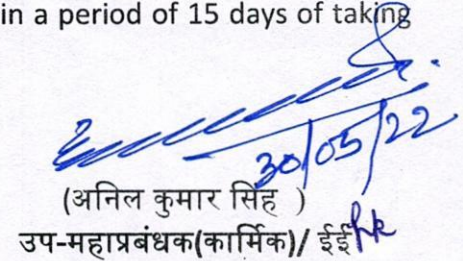 in a period of 15 days of taking
30/05/22
(अनिल कुमार सिंह )
उप-महाप्रबंधक(कार्मिक)/ ईई